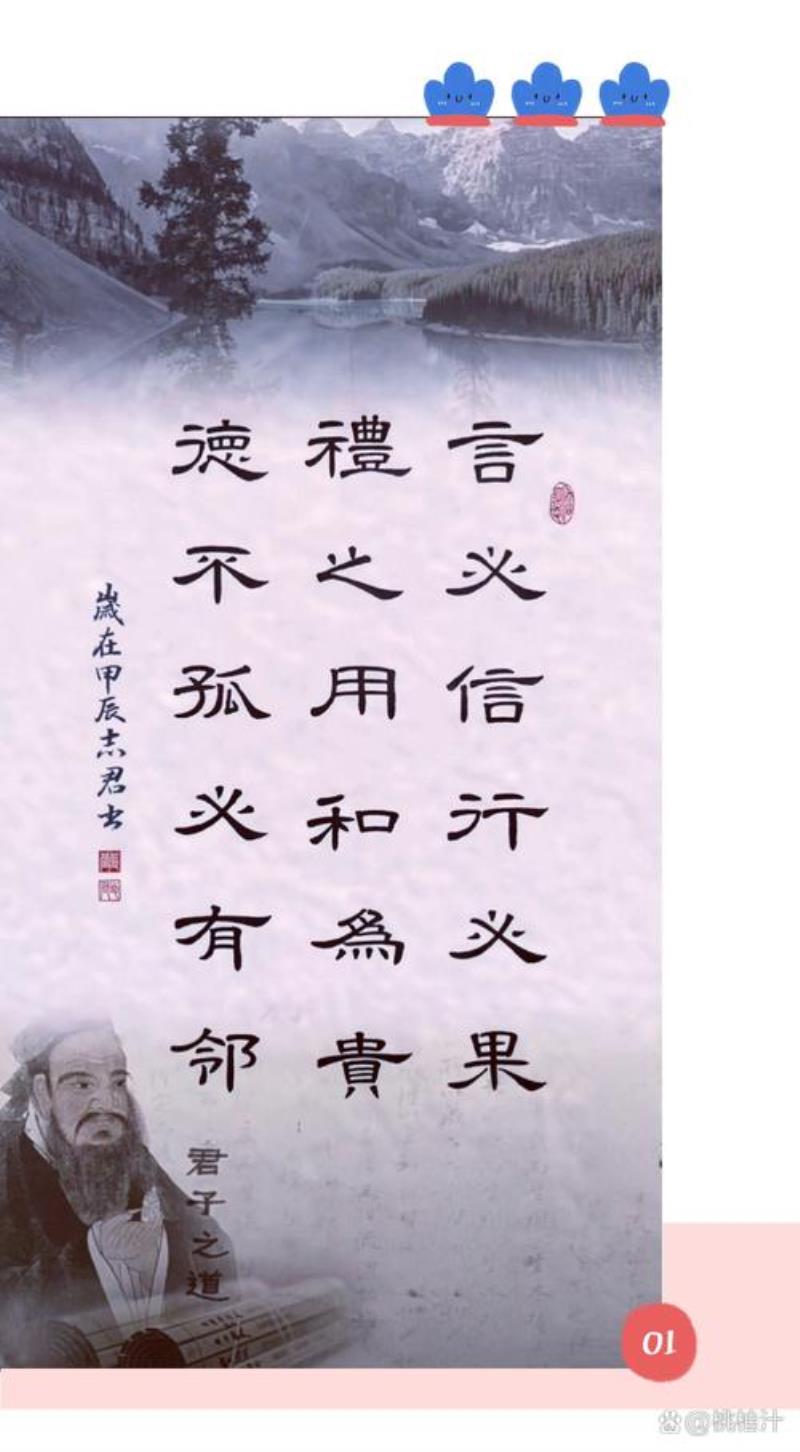 言必信行必果
禮之用和為貴
德不孤必有邻
君子之道
歲在甲辰志君书
01